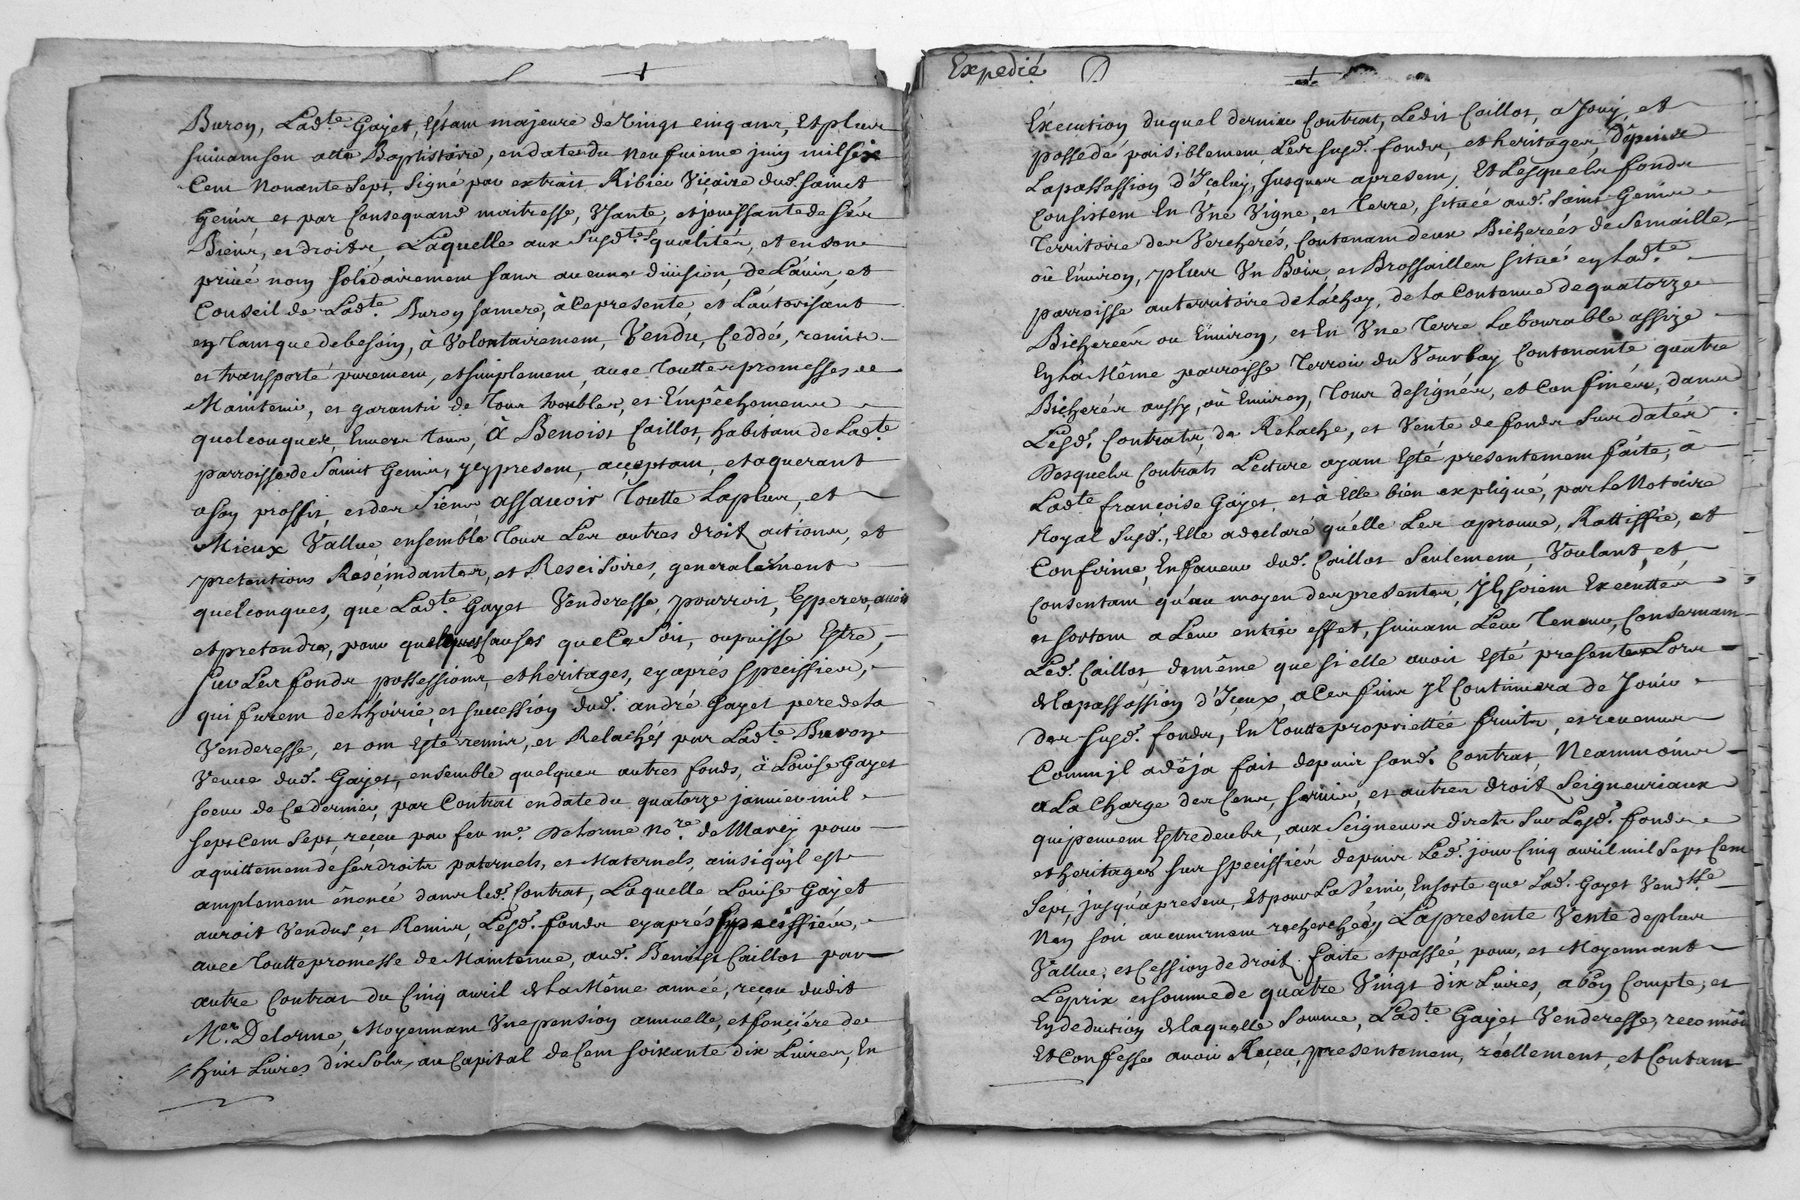 Buron, Ladte. Gayet, Estant majeure de Vingt cinq ans, Et plus
suivant son acte Baptistaire, en datte du neufvieme juin mil six
Cent Nonante sept, signé par extrait Ribier Vicaire dud. saint
Genis et par Consequand maitresse, Usante, et jouissante de ses
Biens, et droits, Laquelle aux susdtes. qualités, et en son
privé nom solidairement sans aucune division, de L'avis, et
Conseil de Ladte. Buron sa mere, à Ce presente, et L'autorisant
en tant que de besoin, à Volontairement, Vendu, Ceddé, remis
et transporté purement, et simplement, avec touttes promesses de
Maintenir, et garantir de tous troubles, et Empêchements
quelconques, Envers tous, à Benoist Caillot, habitant de Ladte.
parroisse de Saint Genis, icy present, acceptant, et aquerant
a son proffit, et des siens assavoir toutte La plus, et
Mieux Vallue, ensemble tous Les autres droit, actions, et
pretentions Rescindantes, et Rescisoires, generalement
quelconques, que Ladte. Gayet Venderesse, pourroit, Esperer, avoir
et pretendre, pour quelques Causes que Ce soit, ou puisse Estre,
sur Les fonds possessions, et héritages, cy aprés speciffiés,
qui furent de L'hoirie, et succession dud. andré Gayet pere de La
Venderesse, et ont Esté remis, et Relachés par Ladte. Buron
Veuve dud. Gayet, ensemble quelques autres fonds, à Louise Gayet
soeur de Ce dernier, par Contrat en date du quatorze janvier mil
sept Cent sept, reçeu par feu me. Delorme nore. de Marcy pour
aquittement de ses droits paternels, et Maternels, ainsi qu'il est
amplement énoncé dans led. Contrat, Laquelle Louise Gayet
auroit Vendus, et Remis, Lesd. fonds cy aprés speciffiés,
avec toutte promesse de Maintenue, aud. Benoist Caillot par
autre Contrat du Cinq avril de La Même année, reçeu dudit
Me. Delorme, Moyennant Une pension annuelle, et fonciére de
huit Livres dix sols, au Capital de Cent soixante dix Livres, En
Expedié
Exécution duquel dernier Contrat, Ledit Caillot, a Jouy, et
possedé paisiblement Les susd. fonds, et heritages Depuis
La possession d'Iceluy, Jusques a present, Et Lesquels fonds
Consistent En Une Vigne, et Terre, située aud. Saint Genis
Territoire des Vercherés, Contenant deux Bicherées de Semaille
où Environ, plus Un Bois, et Brossailles situé en Ladte.
parroisse au territoire de Láchay, de La Contenue de quatorze
Bicherées ou Environ, et En Une Terre Labourable assize
En La Même parroisse Terroir du Vourbey Contenante quatre
Bicherés aussy, où Environ, Tous designés, et Confinés, dans
Lesd. Contrats, de Relache, et Vente de fonds sus datés
Desquels Contrats Lecture ayant Esté presentement faite, à
Ladte. françoise Gayet, et à Elle bien expliqué, par Le Notaire
Royal susd., Elle a declaré qu'elle Les aprouve, Rattiffie, et
Confirme, En faveur dud. Caillot seulement, Voulant, et
Consentant qu'au moyen des presentes, Ils soient Executtés
et sortent a Leur entier effet, suivant Leur Teneur, Conservant
Led. Caillot de même que si elle avoit Esté presente Lors
de La passassion d'Iceux, a Ces fins Il Continuera de Jouir
Des susd. fonds, En toutte proprietteé fruits, et revenus
Comm'jl a déja fait depuis sond. Contrat, Neammoins
a La Charge des Cens, servis, et autres droit Seigneuriaux
qui peuvent Estre deubs, aux Seigneurs directs sur Lesd. fonds
et heritages sus speciffiés depuis Led. jour Cinq avril mil sept Cent
sept, jusqu'a present, Et pour La Venir, En sorte que Lad. Gayet Vendsse.
N'en soit aucunement recherchée, La presente Vente de plus
Vallue, et Cession de droit faite et passée, pour, et Moyennant
Le prix et somme de quatre Vingt dix Livres, a bon Compte, et
En deduction de laquelle somme, Ladte. Gayet Venderesse, reconnoit
Et Confesse avoir Reçeu, presentement, réellement, et Contant